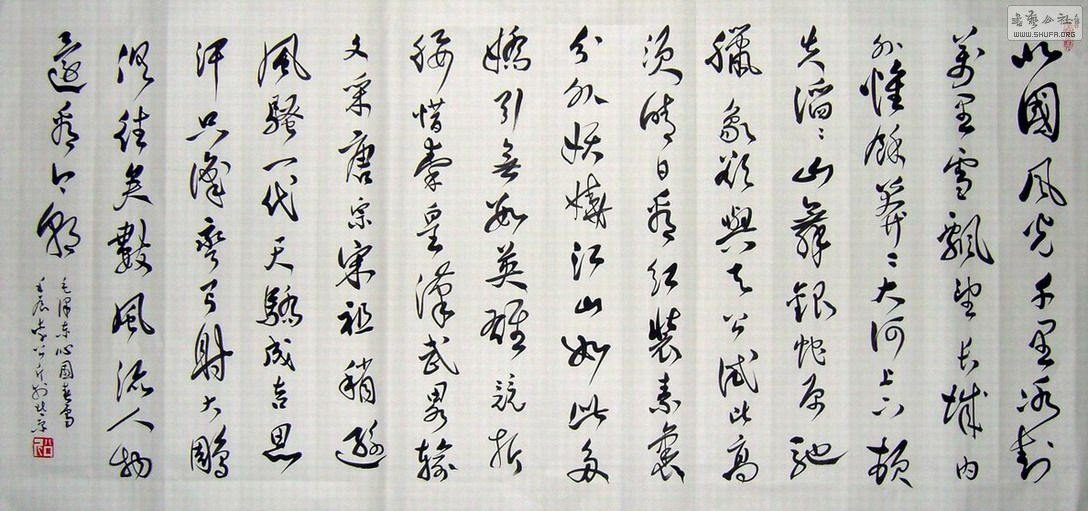 书艺公社
WWW.SHUFA.ORG
北國風光千里冰封
萬里雪飄望长城内
外惟餘莽〻大河上下頓
失滔〻山舞銀蛇原馳
臘象欲與天公试比高
须晴日看红裝素裹
分外妖嬈江山如此多
嬌引無數英雄競折
腰惜秦皇漢武畧输
文采唐宗宋祖稍遜
風騷一代天驕成吉思
汗只識彎弓射大鵰
俱往矣數風流人物
還看今朝
毛泽东沁園春雪
壬辰